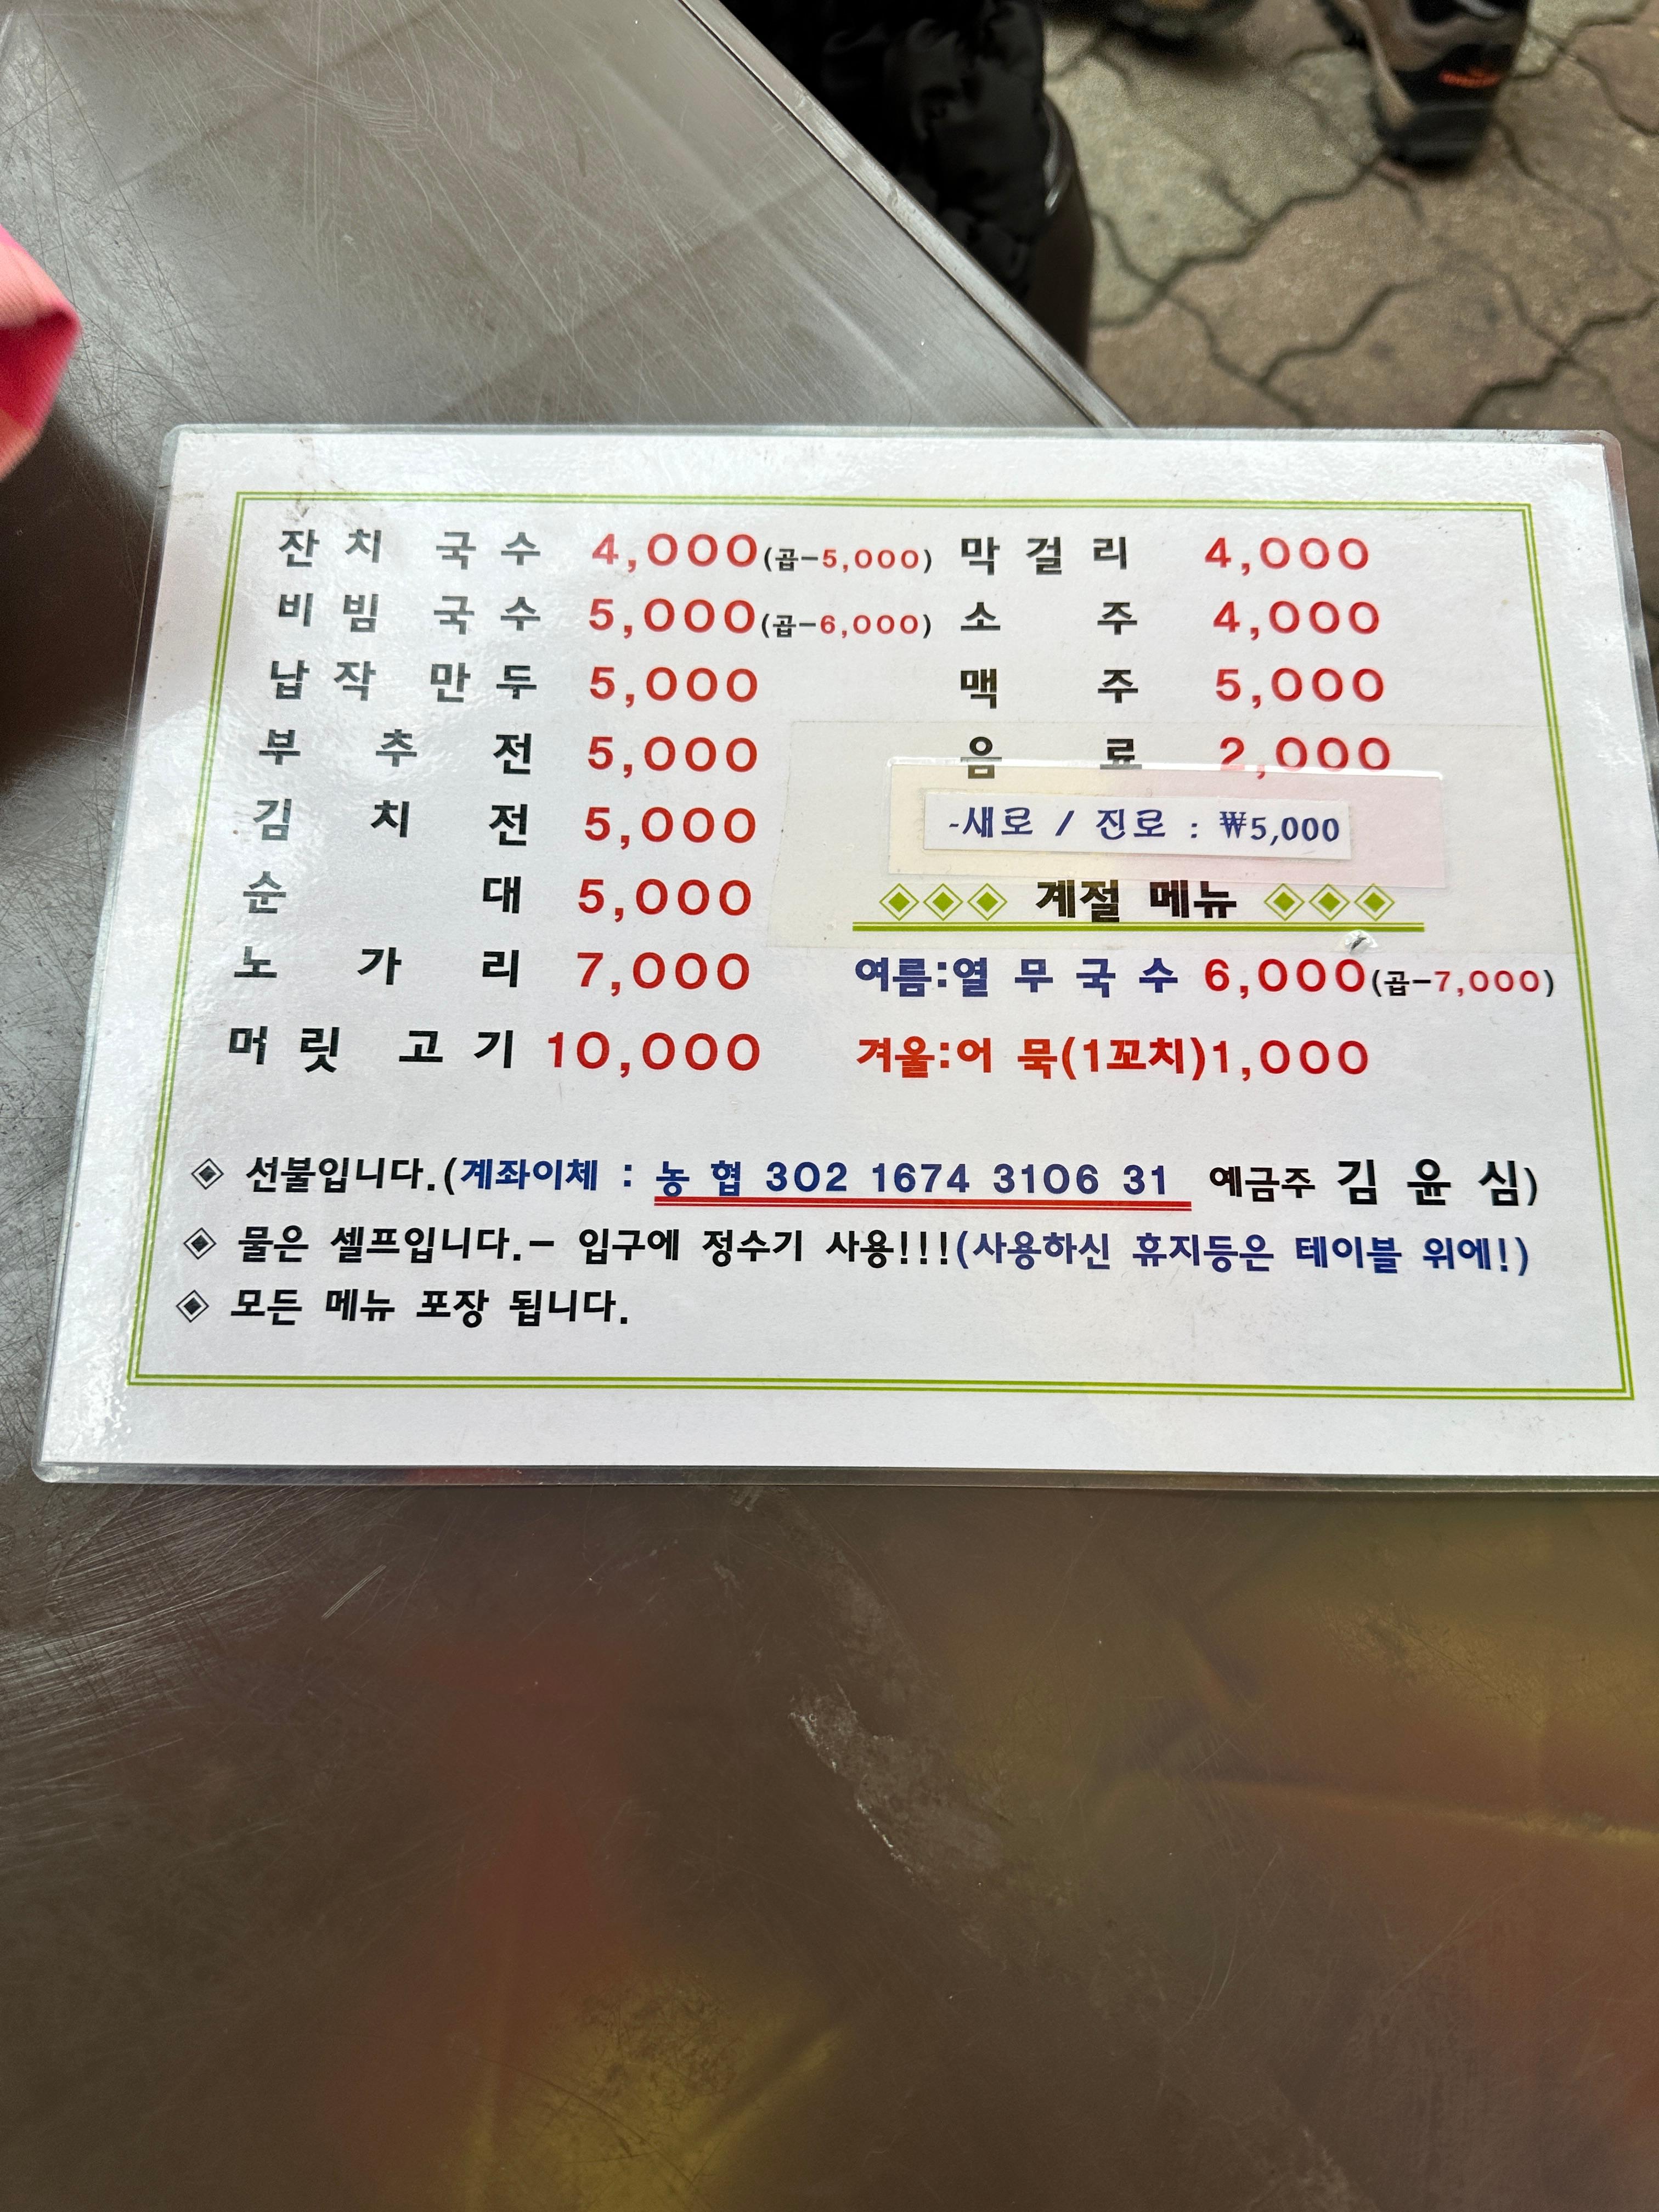 잔치 국수 4,000(곱-5,000) 막걸리 4,000
비빔 국수 5,000(곱-6,000) 소주 4,000
납작 만두 5,000 맥주 5,000
부추전 5,000 음료 2,000
김치전 5,000 -새로 / 진로 : ₩5,000
순대 5,000 계절 메뉴
노가리 7,000 여름:열무국수 6,000(곱-7,000)
머릿고기 10,000 겨울:어묵(1꼬치)1,000
선불입니다.(계좌이체 : 농협 302 1674 3106 31 예금주 김윤심)
물은 셀프입니다.- 입구에 정수기 사용!!!(사용하신 휴지등은 테이블 위에!)
모든 메뉴 포장 됩니다.